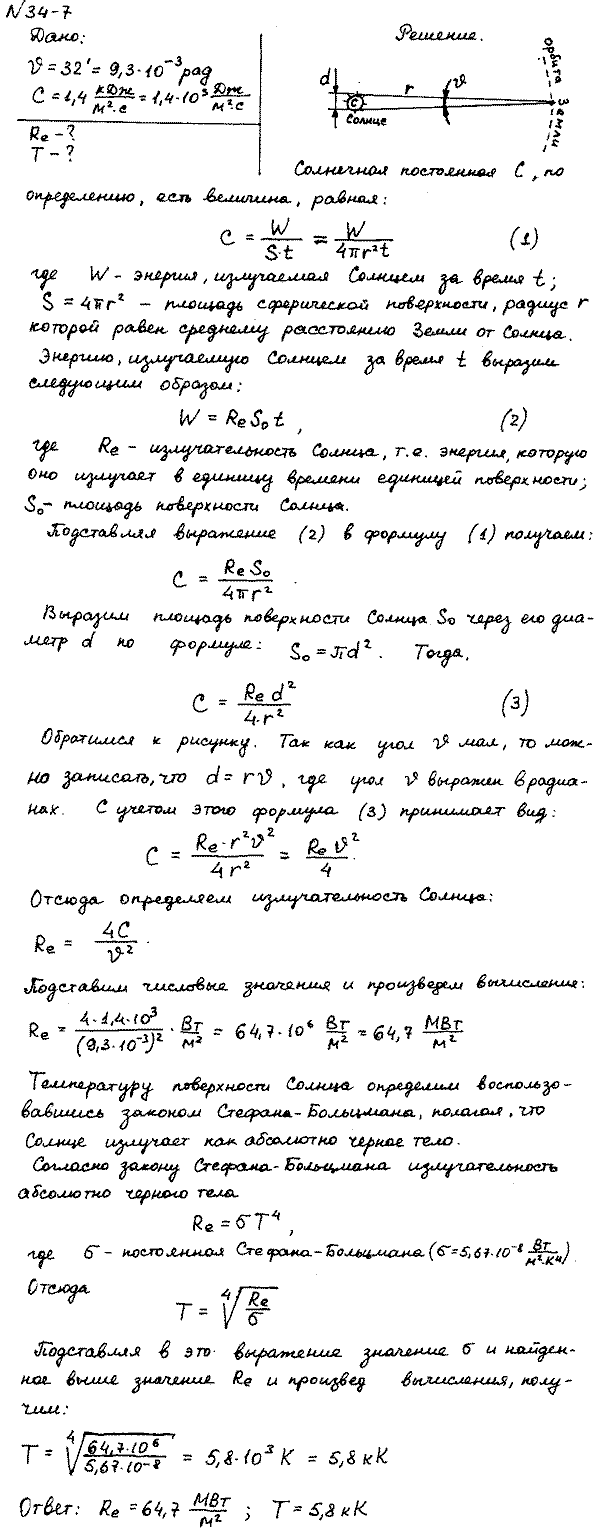 №34-7
Дано:
ϑ = 32' = 9,3·10⁻³ рад
C = 1,4 кДж/м²·с = 1,4·10³ Дж/м²с
Re - ?
T - ?
Решение.
d
r
ϑ
C
Солнце
орбита
Земли
Солнечная постоянная C, по
определению, есть величина, равная:
C = W/S·t = W/4πr²t (1)
где W - энергия, излучаемая Солнцем за время t;
S = 4πr² - площадь сферической поверхности, радиус r
которой равен среднему расстоянию Земли от Солнца.
Энергию, излучаемую Солнцем за время t выразим
следующим образом:
W = Re S₀ t, (2)
где Re - излучательность Солнца, т.е. энергия, которую
оно излучает в единицу времени единицей поверхности;
S₀ - площадь поверхности Солнца.
Подставляя выражение (2) в формулу (1) получаем:
C = Re S₀/4πr².
Выразим площадь поверхности Солнца S₀ через его диа-
метр d по формуле: S₀ = πd². Тогда,
C = Re d²/4·r² (3)
Обратимся к рисунку. Так как угол ϑ мал, то мож-
но записать, что d = rϑ, где угол ϑ выражен в радиа-
нах. С учетом этого формула (3) принимает вид:
C = Re·r²ϑ²/4r² = Re ϑ²/4.
Отсюда определяем излучательность Солнца:
Re = 4C/ϑ².
Подставим числовые значения и произведем вычисление:
Re = 4·1,4·10³/(9,3·10⁻³)² · Вт/м² = 64,7·10⁶ Вт/м² = 64,7 МВт/м²
Температуру поверхности Солнца определим воспользо-
вавшись законом Стефана-Больцмана, полагая, что
Солнце излучает как абсолютно черное тело.
Согласно закону Стефана-Больцмана излучательность
абсолютно черного тела
Re = σT⁴,
где σ - постоянная Стефана-Больцмана (σ=5,67·10⁻⁸ Вт/м²·К⁴)
Отсюда
T = ⁴√(Re/σ)
Подставляя в это выражение значение σ и найден-
ное выше значение Re и произвед вычисления, полу-
чим:
T = ⁴√(64,7·10⁶/5,67·10⁻⁸) = 5,8·10³ К = 5,8 кК
Ответ: Re = 64,7 МВт/м² ; T = 5,8 кК